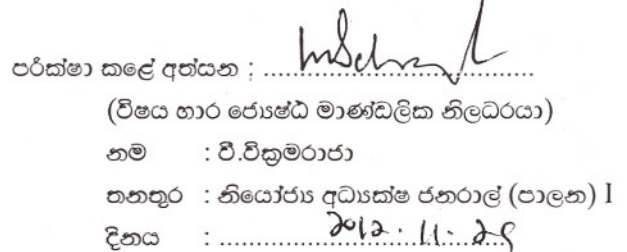 පරීක්ෂා කළේ අත්සන : ........................................
(විෂය භාර ජ්‍යෙෂ්ඨ මාණ්ඩලික නිලධරයා)
නම : වී.වික්‍රමරාජා
තනතුර : නියෝජ්‍ය අධ්‍යක්ෂ ජනරාල් (පාලන) I
දිනය : 2012. 11. 28